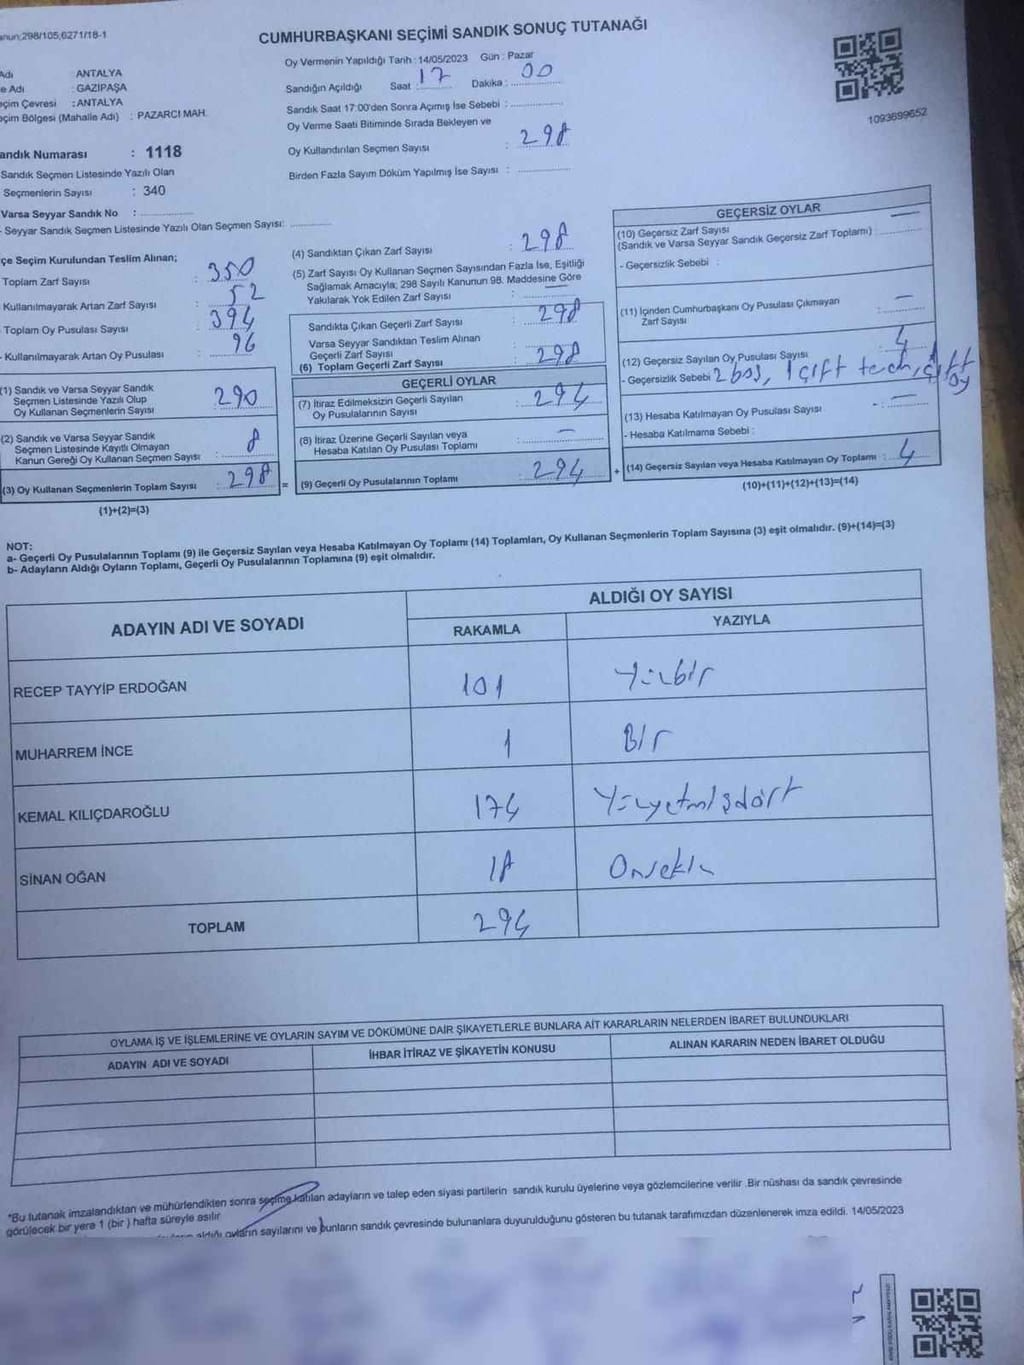 anun;298/105,6271/18-1
CUMHURBAŞKANI SEÇİMİ SANDIK SONUÇ TUTANAĞI
Adı : ANTALYA
e Adı : GAZİPAŞA
eçim Çevresi : ANTALYA
eçim Bölgesi (Mahalle Adı) : PAZARCI MAH.
andık Numarası : 1118
Sandık Seçmen Listesinde Yazılı Olan
Seçmenlerin Sayısı : 340
Varsa Seyyar Sandık No :
- Seyyar Sandık Seçmen Listesinde Yazılı Olan Seçmen Sayısı:
Oy Vermenin Yapıldığı Tarih : 14/05/2023 Gün : Pazar
Sandığın Açıldığı Saat : 17 Dakika : 00
Sandık Saat 17:00'den Sonra Açımış İse Sebebi :
Oy Verme Saati Bitiminde Sırada Bekleyen ve
Oy Kullandırılan Seçmen Sayısı : 298
Birden Fazla Sayım Döküm Yapılmış İse Sayısı :
1093699652
çe Seçim Kurulundan Teslim Alınan;
Toplam Zarf Sayısı : 350
Kullanılmayarak Artan Zarf Sayısı : 52
Toplam Oy Pusulası Sayısı : 394
- Kullanılmayarak Artan Oy Pusulası : 96
(1) Sandık ve Varsa Seyyar Sandık
Seçmen Listesinde Yazılı Olup
Oy Kullanan Seçmenlerin Sayısı : 290
(2) Sandık ve Varsa Seyyar Sandık
Seçmen Listesinde Kayıtlı Olmayan
Kanun Gereği Oy Kullanan Seçmen Sayısı : 8
(3) Oy Kullanan Seçmenlerin Toplam Sayısı : 298 =
(1)+(2)=(3)
(4) Sandıktan Çıkan Zarf Sayısı : 298
(5) Zarf Sayısı Oy Kullanan Seçmen Sayısından Fazla İse, Eşitliği
Sağlamak Amacıyla; 298 Sayılı Kanunun 98. Maddesine Göre
Yakılarak Yok Edilen Zarf Sayısı : —
Sandıkta Çıkan Geçerli Zarf Sayısı : 298
Varsa Seyyar Sandıktan Teslim Alınan
Geçerli Zarf Sayısı :
(6) Toplam Geçerli Zarf Sayısı : 298
GEÇERLİ OYLAR
(7) İtiraz Edilmeksizin Geçerli Sayılan
Oy Pusulalarının Sayısı : 294
(8) İtiraz Üzerine Geçerli Sayılan veya
Hesaba Katılan Oy Pusulası Toplamı : —
(9) Geçerli Oy Pusulalarının Toplamı : 294 +
GEÇERSİZ OYLAR
(10) Geçersiz Zarf Sayısı —
(Sandık ve Varsa Seyyar Sandık Geçersiz Zarf Toplamı) :
- Geçersizlik Sebebi :
(11) İçinden Cumhurbaşkanı Oy Pusulası Çıkmayan
Zarf Sayısı : —
(12) Geçersiz Sayılan Oy Pusulası Sayısı : 4
- Geçersizlik Sebebi 2 boş, 1 çift tercih, 1 çift
oy
(13) Hesaba Katılmayan Oy Pusulası Sayısı - : —
- Hesaba Katılmama Sebebi :
(14) Geçersiz Sayılan veya Hesaba Katılmayan Oy Toplamı : 4
(10)+(11)+(12)+(13)=(14)
NOT:
a- Geçerli Oy Pusulalarının Toplamı (9) ile Geçersiz Sayılan veya Hesaba Katılmayan Oy Toplamı (14) Toplamları, Oy Kullanan Seçmenlerin Toplam Sayısına (3) eşit olmalıdır. (9)+(14)=(3)
b- Adayların Aldığı Oyların Toplamı, Geçerli Oy Pusulalarının Toplamına (9) eşit olmalıdır.
ADAYIN ADI VE SOYADI ALDIĞI OY SAYISI
RAKAMLA YAZIYLA
RECEP TAYYİP ERDOĞAN 101 Yüzbir
MUHARREM İNCE 1 Bir
KEMAL KILIÇDAROĞLU 174 Yüzyetmişdört
SİNAN OĞAN 18 Onsekiz
TOPLAM 294
OYLAMA İŞ VE İŞLEMLERİNE VE OYLARIN SAYIM VE DÖKÜMÜNE DAİR ŞİKAYETLERLE BUNLARA AİT KARARLARIN NELERDEN İBARET BULUNDUKLARI
ADAYIN ADI VE SOYADI İHBAR İTİRAZ VE ŞİKAYETİN KONUSU ALINAN KARARIN NEDEN İBARET OLDUĞU
*Bu tutanak imzalandıktan ve mühürlendikten sonra seçime katılan adayların ve talep eden siyasi partilerin sandık kurulu üyelerine veya gözlemcilerine verilir .Bir nüshası da sandık çevresinde
görülecek bir yere 1 (bir ) hafta süreyle asılır
aldığı oyların sayılarını ve bunların sandık çevresinde bulunanlara duyurulduğunu gösteren bu tutanak tarafımızdan düzenlenerek imza edildi. 14/05/2023